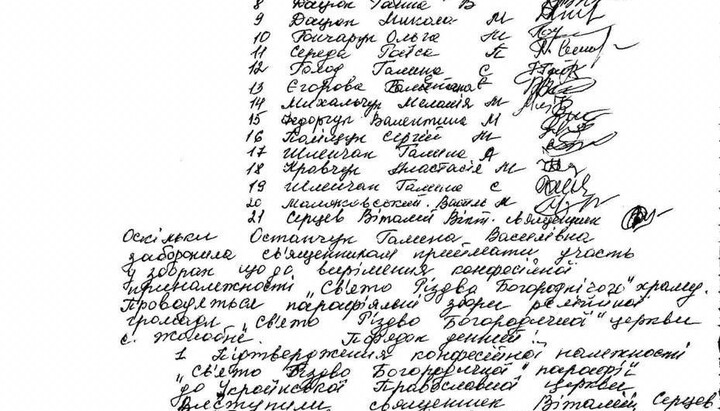 8 Дацюк Галина В
9 Дацюк Микола М
10 Гончарук Ольга М
11 Середа Раїса П
12 Голод Галина С
13 Єгорова
14 Михальчук Меланія М
15 Федорчук Валентина М
16 Поліщук Сергій М
17 Шлейчак Галина А
18 Кравчук Анастасія М
19 Шлейчак Галина С
20 Василь М
21 Серцев Віталій Вікт. священник
Оскільки Остапчук Галина Василівна
заборонила священникам приймати участь
у зборах щодо вирішення конфесійної
приналежності "Свєто Різдва Богородничого" храму.
Проводяться парафіяльні збори релігійної
громади "Свєто Різдво Богородичної" церкви
с. Жолобне. Порядок денний
1. Підтвердження конфесійної належності
"Свєто Різдво Богородичної" парафії
до Української Православної церкви
Виступили священник Віталій Серцев